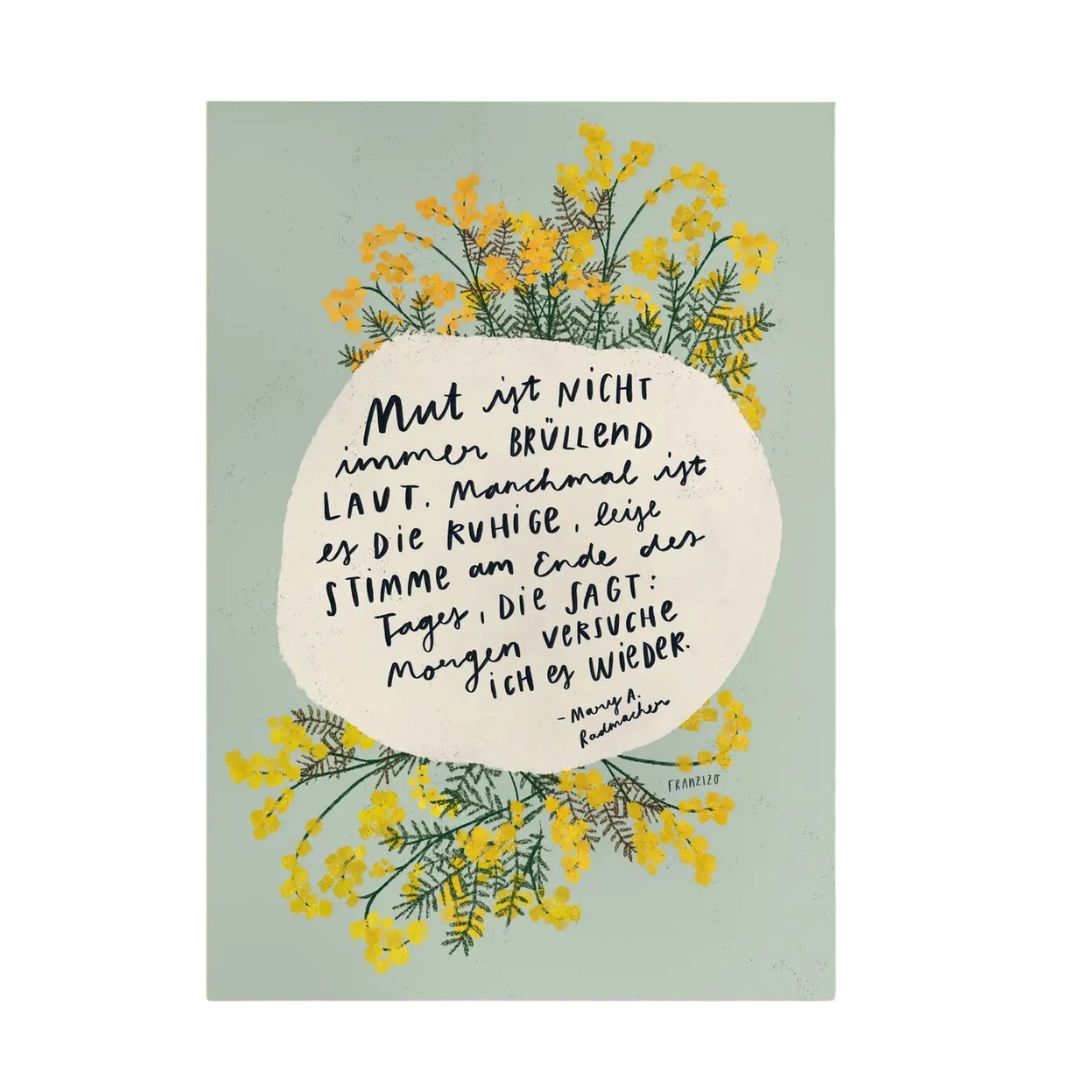 Mut ist NICHT
immer BRÜLLEND
LAUT. Manchmal ist
es DIE RUHIGE, leise
STIMME am Ende des
Tages, DIE SAGT:
Morgen VERSUCHE
ICH es WIEDER.
- Mary A.
Radmacher
FRANZIZO